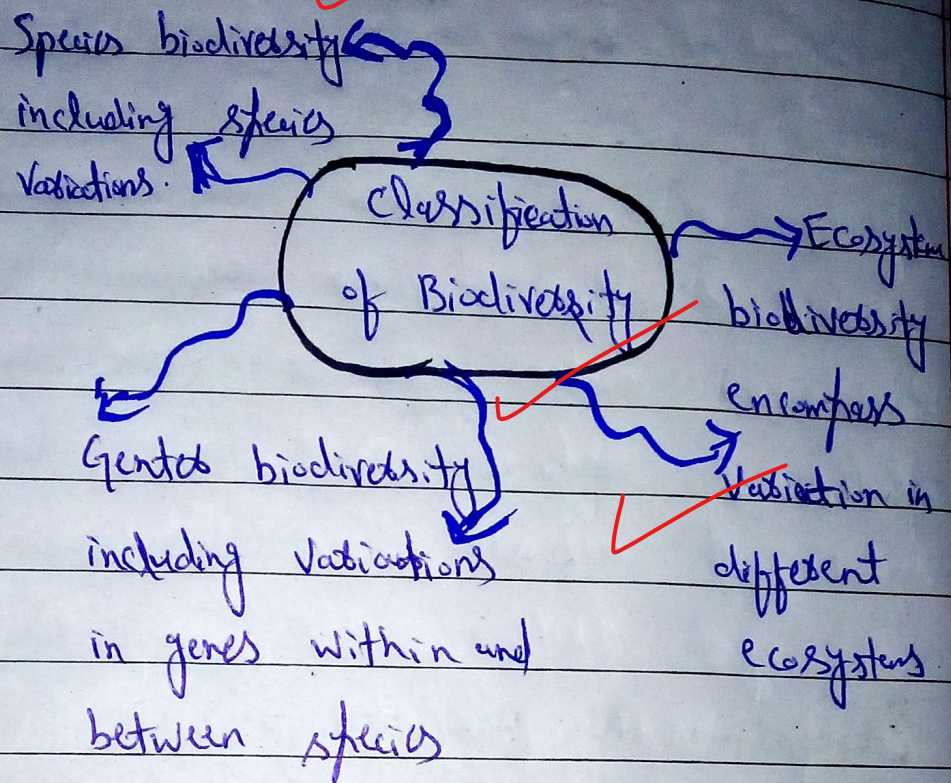 Species biodiversity
including species
variations.
Classification
of Biodiversity
Ecosystem
biodiversity
encompass
variation in
different
ecosystems
biodiversity
including variations
in genes within and
between species